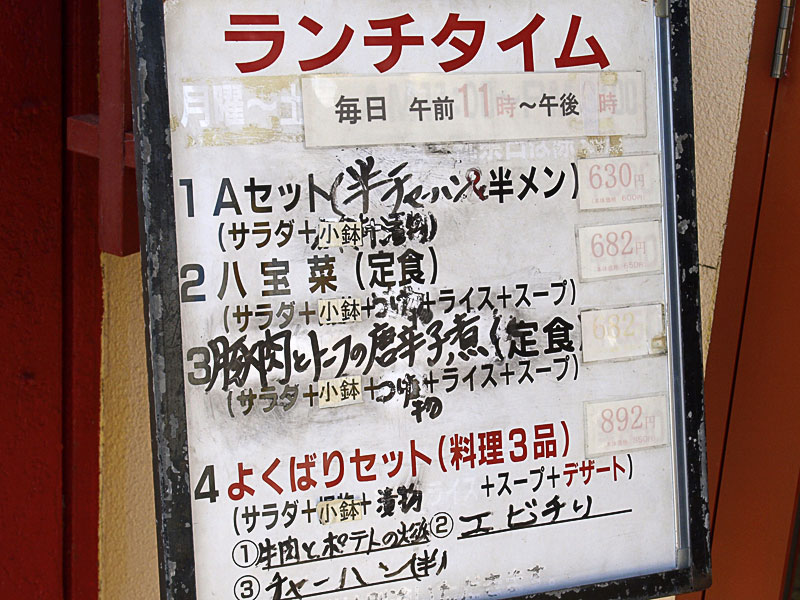 ランチタイム
毎日 午前11時～午後 時
1 Aセット(半チャーハン&半メン) 630円
(サラダ+小鉢+漬物)
682円
2 八宝菜(定食)
(サラダ+小鉢+つけ物+ライス+スープ)
3 豚肉とトーフの唐辛子煮(定食 682円
(サラダ+小鉢+つけ物+ライス+スープ)
892円
4 よくばりセット(料理3品)
(サラダ+小鉢+漬物 +スープ+デザート)
①牛肉とポテトの ②エビチリ
③チャーハン(半)